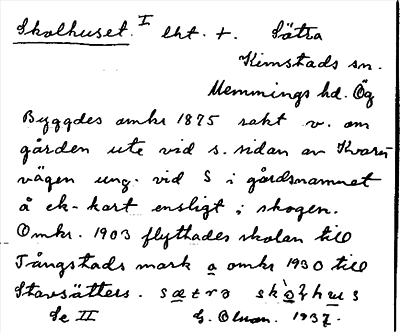 Skolhuset. I lht. t. Sätra
Kimstads sn.
Memmings hd. Ög
Byggdes omkr 1875 rakt v. om
gården ute vid s. sidan av Kvarn-
vägen ung. vid S i gårdsnamnet
å ek-kart ensligt i skogen.
Omkr. 1903 flyttades skolan till
Tångstads mark o omkr 1930 till
Stavsätters. sætrɔ skòḷhʉs
Se II G. Olson. 1937.